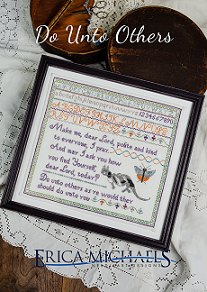 Do Unto Others
1234567890
Make me, dear Lord, polite and kind
to everyone, I pray...
And may I ask you how
you find Yourself,
dear Lord, today?
Do unto others as ye would they
should do unto you
ERICA MICHAELS
NEEDLEART DESIGNS